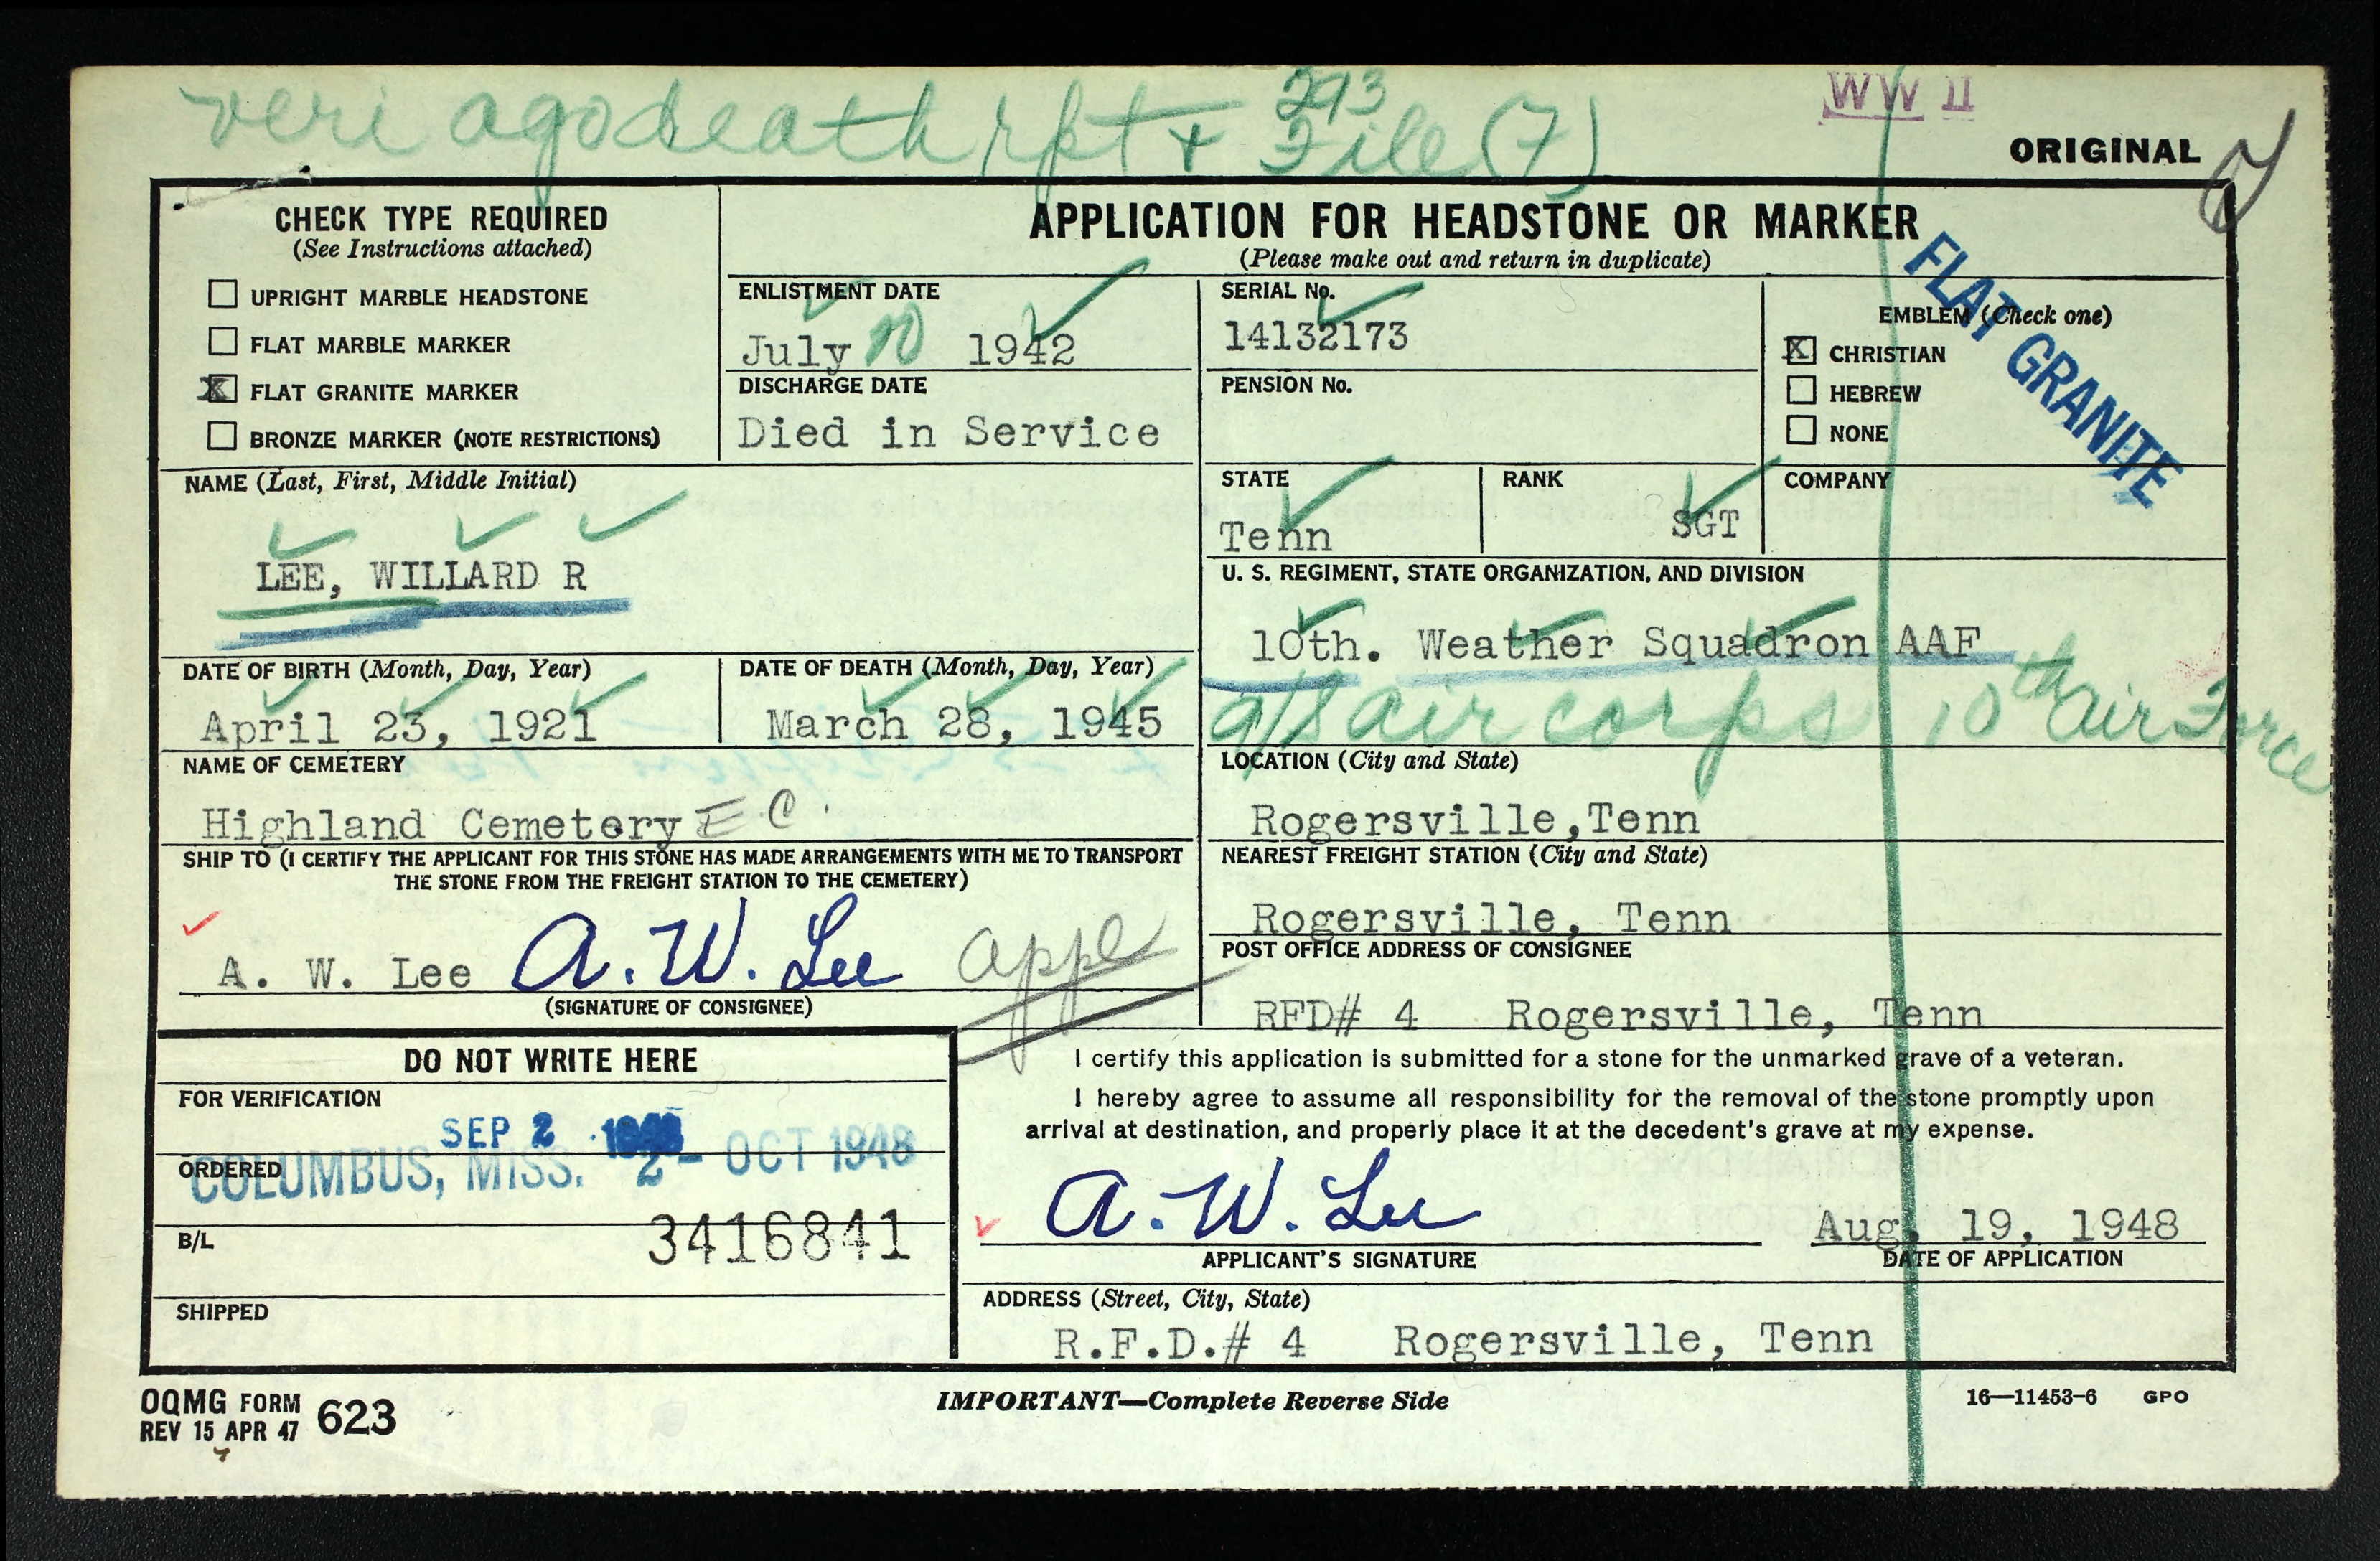 veri ago death rpt + 293 File (7)
WW II
ORIGINAL
CHECK TYPE REQUIRED
(See Instructions attached)
UPRIGHT MARBLE HEADSTONE
FLAT MARBLE MARKER
X FLAT GRANITE MARKER
BRONZE MARKER (NOTE RESTRICTIONS)
APPLICATION FOR HEADSTONE OR MARKER
(Please make out and return in duplicate)
ENLISTMENT DATE
July 10 1942
DISCHARGE DATE
Died in Service
SERIAL No.
14132173
PENSION No.
EMBLEM (Check one)
X CHRISTIAN
HEBREW
NONE
FLAT GRANITE
NAME (Last, First, Middle Initial)
LEE, WILLARD R
STATE
Tenn
RANK
SGT
COMPANY
U. S. REGIMENT, STATE ORGANIZATION, AND DIVISION
10th. Weather Squadron AAF
air corps 10th air Force
DATE OF BIRTH (Month, Day, Year)
April 23, 1921
DATE OF DEATH (Month, Day, Year)
March 28, 1945
NAME OF CEMETERY
Highland Cemetery E C.
LOCATION (City and State)
Rogersville,Tenn
SHIP TO (I CERTIFY THE APPLICANT FOR THIS STONE HAS MADE ARRANGEMENTS WITH ME TO TRANSPORT
THE STONE FROM THE FREIGHT STATION TO THE CEMETERY)
A. W. Lee A. W. Lee appl
(SIGNATURE OF CONSIGNEE)
NEAREST FREIGHT STATION (City and State)
Rogersville, Tenn
POST OFFICE ADDRESS OF CONSIGNEE
RFD# 4 Rogersville, Tenn
DO NOT WRITE HERE
FOR VERIFICATION
SEP 2 1948
ORDERED
COLUMBUS, MISS. 2- OCT 1948
B/L
3416841
SHIPPED
I certify this application is submitted for a stone for the unmarked grave of a veteran.
I hereby agree to assume all responsibility for the removal of the stone promptly upon
arrival at destination, and properly place it at the decedent's grave at my expense.
A. W. Lee
APPLICANT'S SIGNATURE
Aug. 19, 1948
DATE OF APPLICATION
ADDRESS (Street, City, State)
R.F.D.# 4 Rogersville, Tenn
OQMG FORM 623
REV 15 APR 47
IMPORTANT—Complete Reverse Side
16—11453-6 GPO